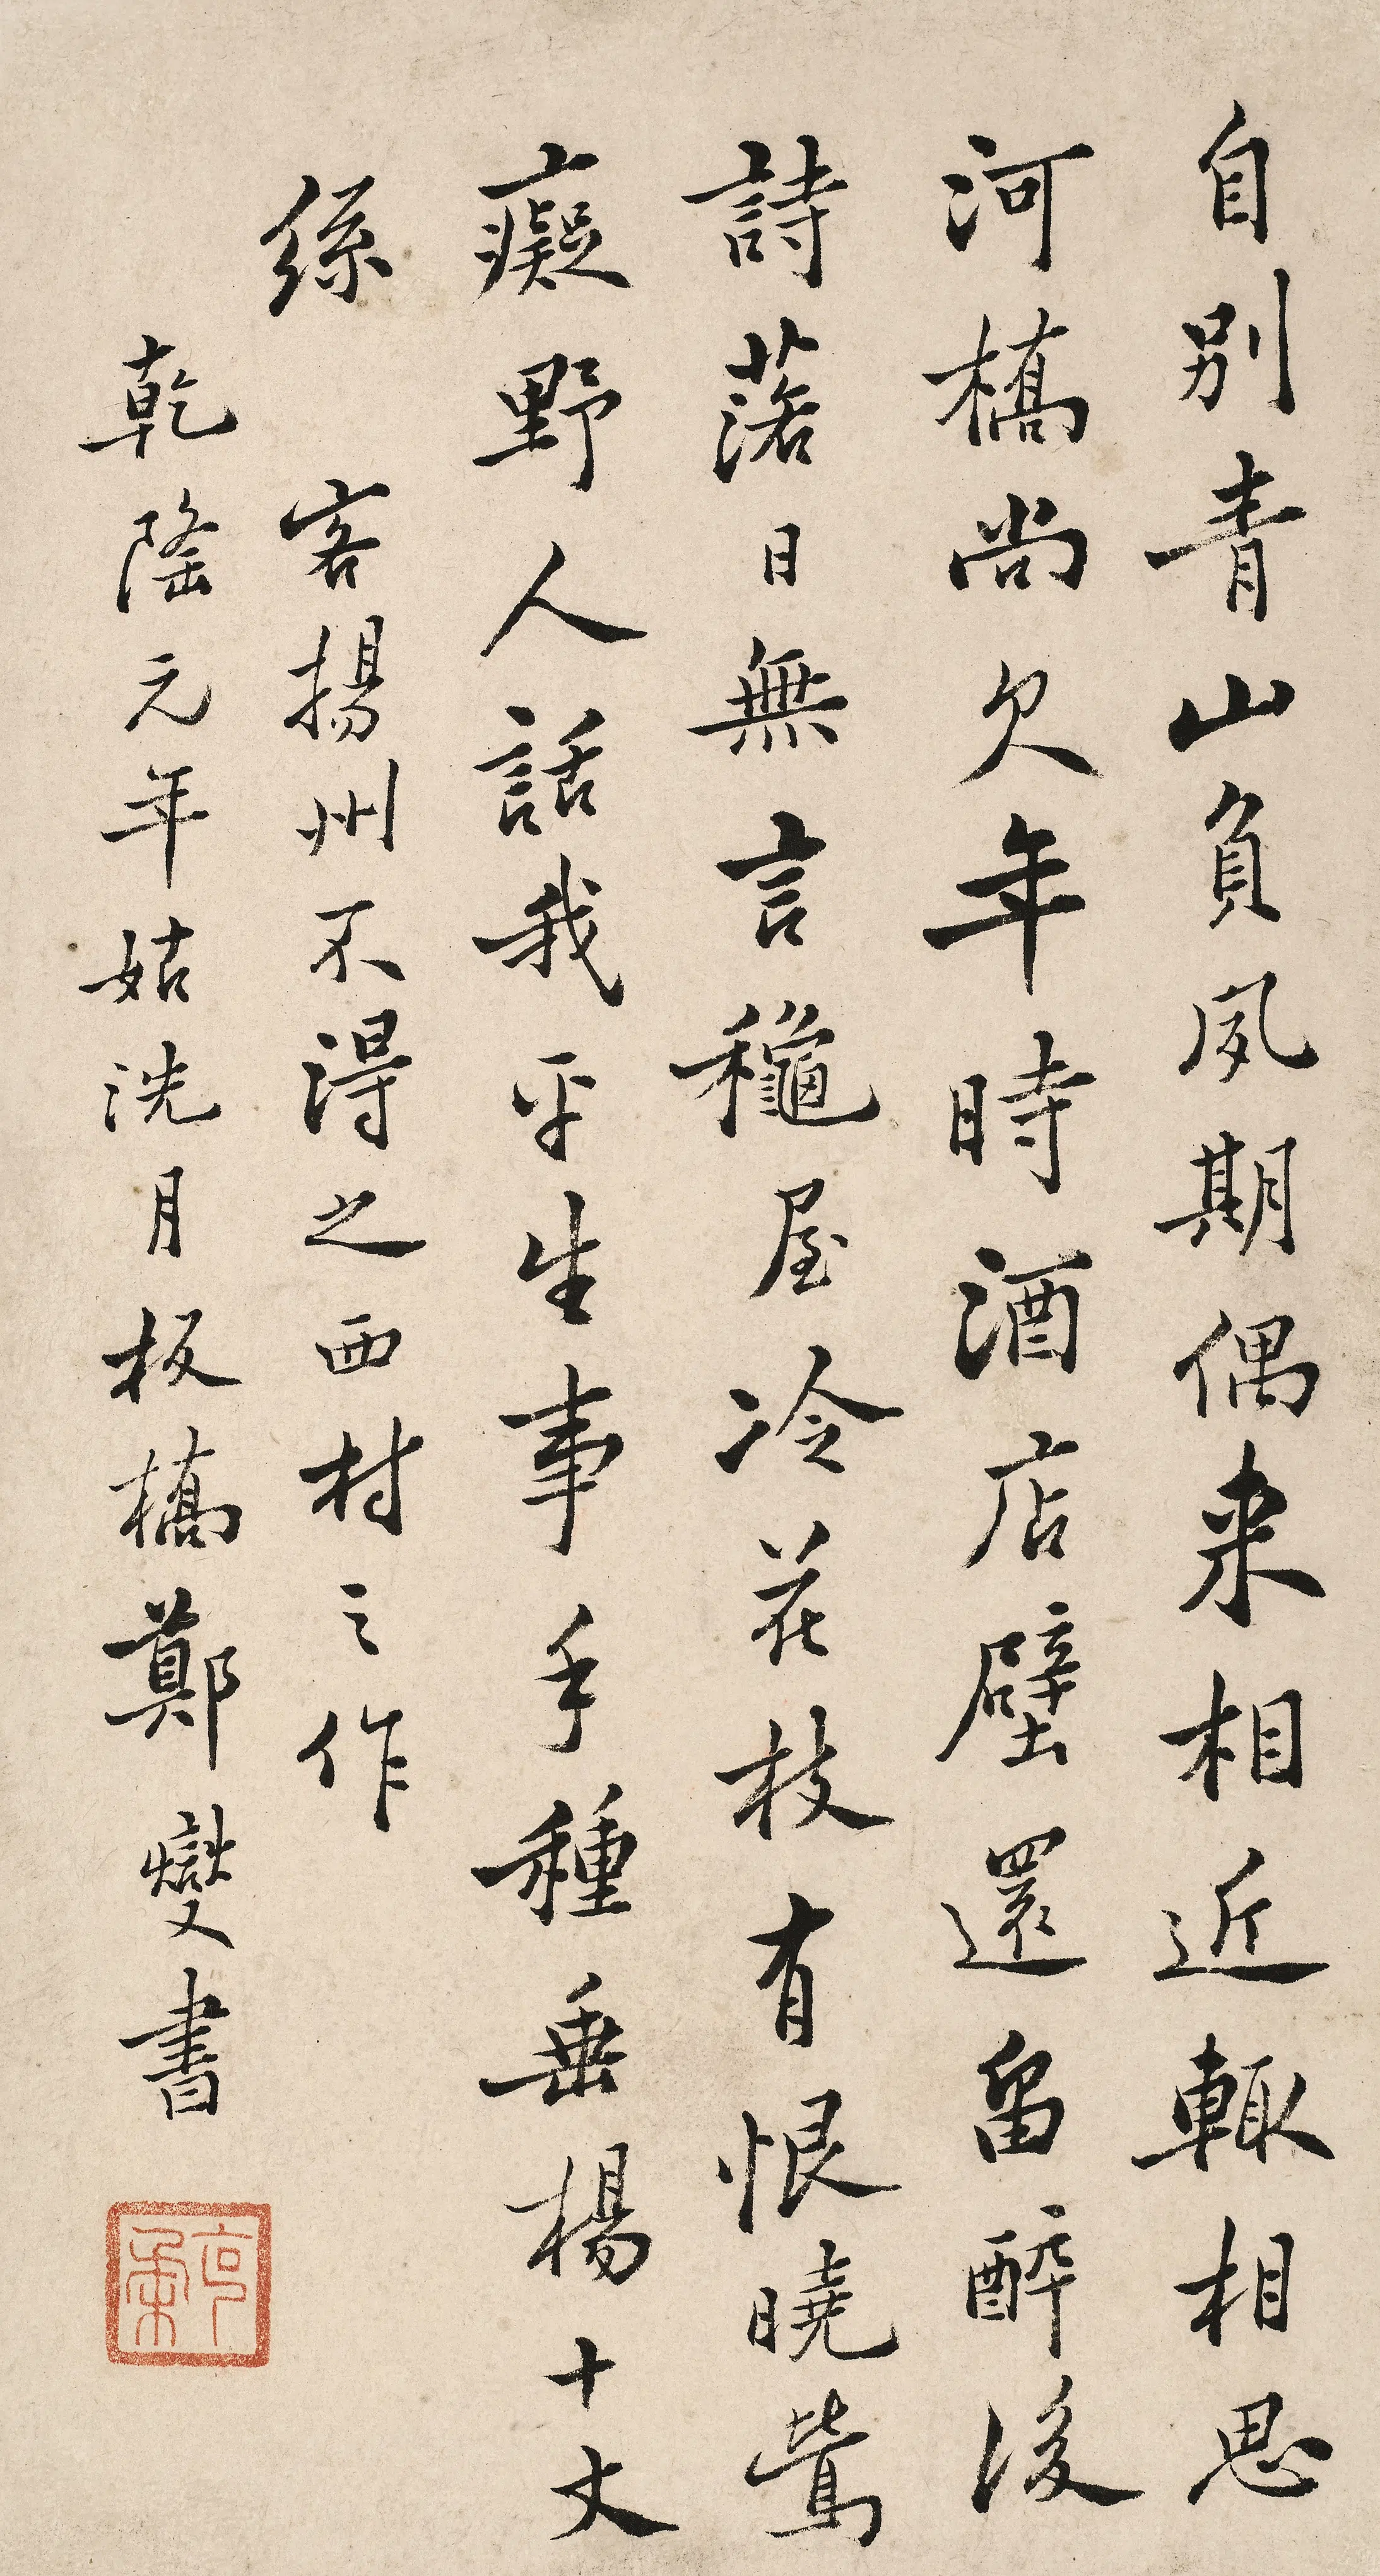 自別青山負夙期偶来相近輒相思
河橋尚欠年時酒店壁還畱醉後
詩落日無言穐屋冷花枝有恨曉鶯
癡野人話我平生事手種垂楊十丈
絲
客揚州不得之西村之作
乾隆元年姑洗月板橋鄭燮書